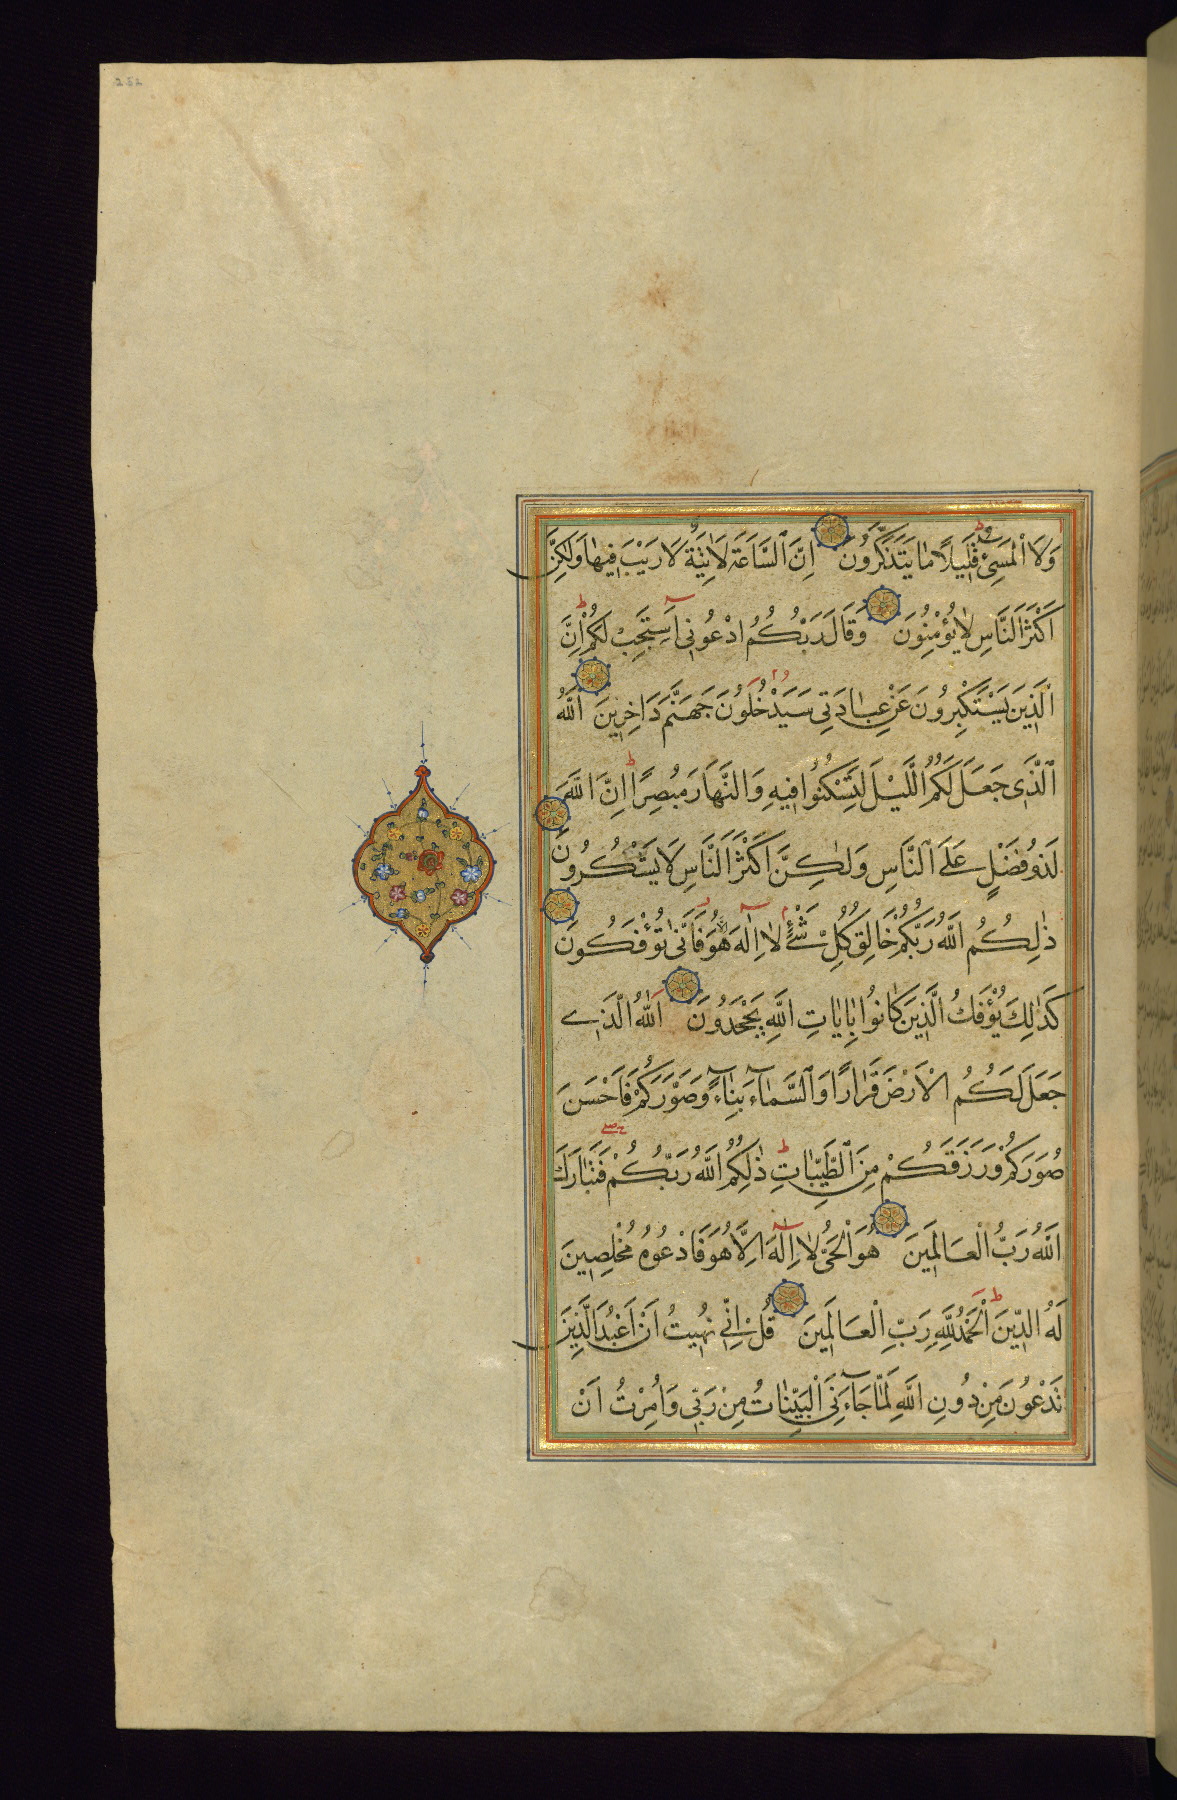 252
وَلَا الْمُسِىءُ قَلِيلًا مَا يَتَذَكَّرُونَ اِنَّ السَّاعَةَ لَاٰتِيَةٌ لَا رَيْبَ فِيهَا وَلٰكِنَّ
اَكْثَرَ النَّاسِ لَا يُؤْمِنُونَ وَقَالَ رَبُّكُمُ ادْعُونِى اَسْتَجِبْ لَكُمْ اِنَّ
الَّذِينَ يَسْتَكْبِرُونَ عَنْ عِبَادَتِى سَيَدْخُلُونَ جَهَنَّمَ دَاخِرِينَ اَللّٰهُ
الَّذِى جَعَلَ لَكُمُ اللَّيْلَ لِتَسْكُنُوا فِيهِ وَالنَّهَارَ مُبْصِرًا اِنَّ اللّٰهَ
لَذُو فَضْلٍ عَلَى النَّاسِ وَلٰكِنَّ اَكْثَرَ النَّاسِ لَا يَشْكُرُونَ
ذٰلِكُمُ اللّٰهُ رَبُّكُمْ خَالِقُ كُلِّ شَىْءٍ لَا اِلٰهَ اِلَّا هُوَ فَاَنّٰى تُؤْفَكُونَ
كَذٰلِكَ يُؤْفَكُ الَّذِينَ كَانُوا بِاٰيَاتِ اللّٰهِ يَجْحَدُونَ اَللّٰهُ الَّذِى
جَعَلَ لَكُمُ الْاَرْضَ قَرَارًا وَالسَّمَاءَ بِنَاءً وَصَوَّرَكُمْ فَاَحْسَنَ
صُوَرَكُمْ وَرَزَقَكُمْ مِنَ الطَّيِّبَاتِ ذٰلِكُمُ اللّٰهُ رَبُّكُمْ فَتَبَارَكَ
اللّٰهُ رَبُّ الْعَالَمِينَ هُوَ الْحَىُّ لَا اِلٰهَ اِلَّا هُوَ فَادْعُوهُ مُخْلِصِينَ
لَهُ الدِّينَ اَلْحَمْدُ لِلّٰهِ رَبِّ الْعَالَمِينَ قُلْ اِنِّى نُهِيتُ اَنْ اَعْبُدَ الَّذِينَ
تَدْعُونَ مِنْ دُونِ اللّٰهِ لَمَّا جَاءَنِىَ الْبَيِّنَاتُ مِنْ رَبِّى وَاُمِرْتُ اَنْ